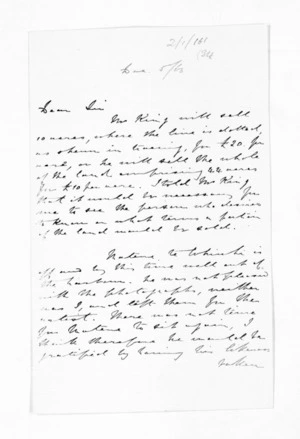 Dear Sir
Mr King will sell
10 acres, where the line is dotted,
as shown in tracing, for £20 per
acre, or he will sell the whole
of the land comprising 44 acres
for £10 per acre. I told Mr King
that it would be necessary for
me to see the person who desires
to know on what terms a portion
of the land would be sold.
Matene Te Whiwhi is
off and by this time well out of
the harbour. he was not pleased
with the photographs, neither
was I, and left them for the
artist. There was not time
for Matene to sit again, I
think therefore he would be
gratified by having his
taken